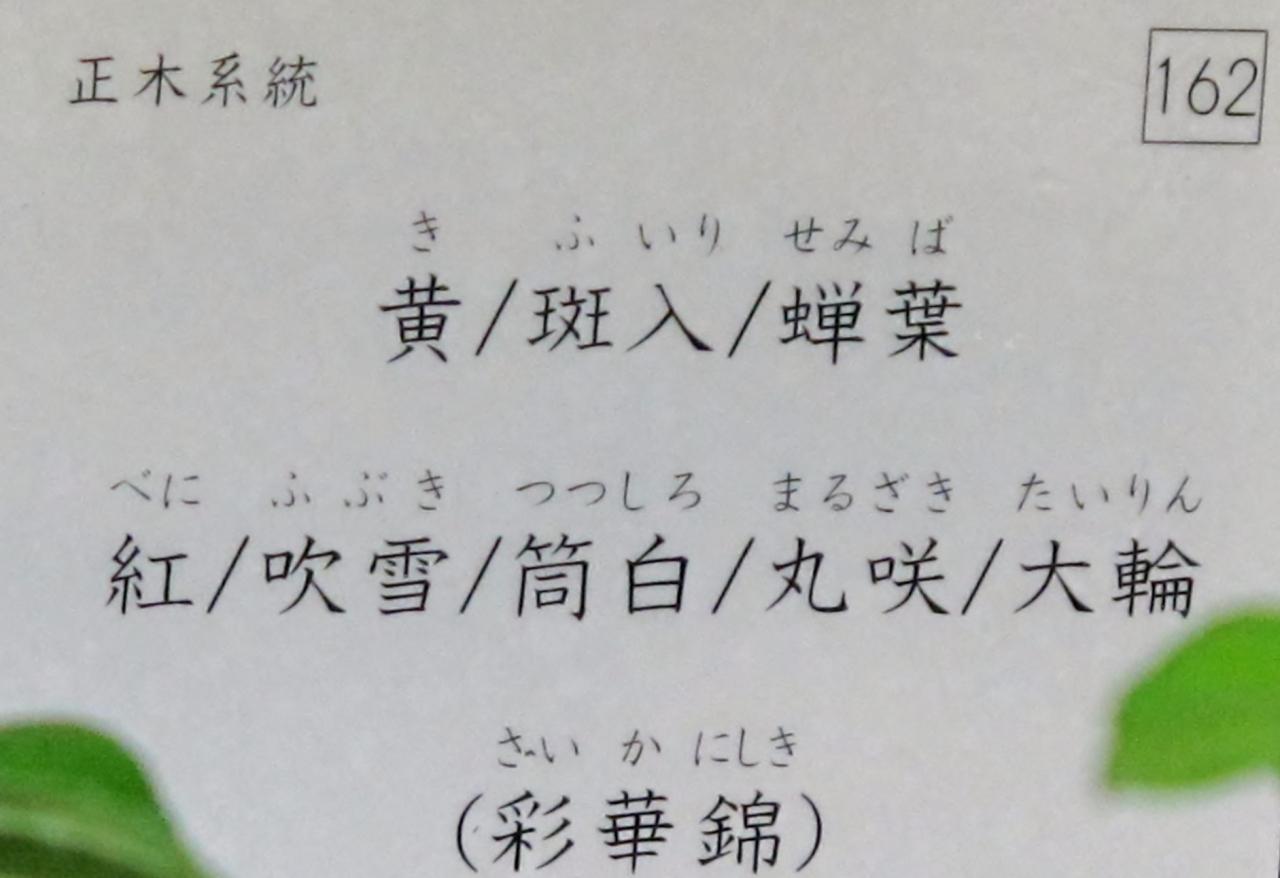 正木系統
162
き ふ いり せみ ば
黄/斑入/蝉葉
べに ふ ぶ き つつしろ まるざき たいりん
紅/吹雪/筒白/丸咲/大輪
さい か にしき
(彩華錦)